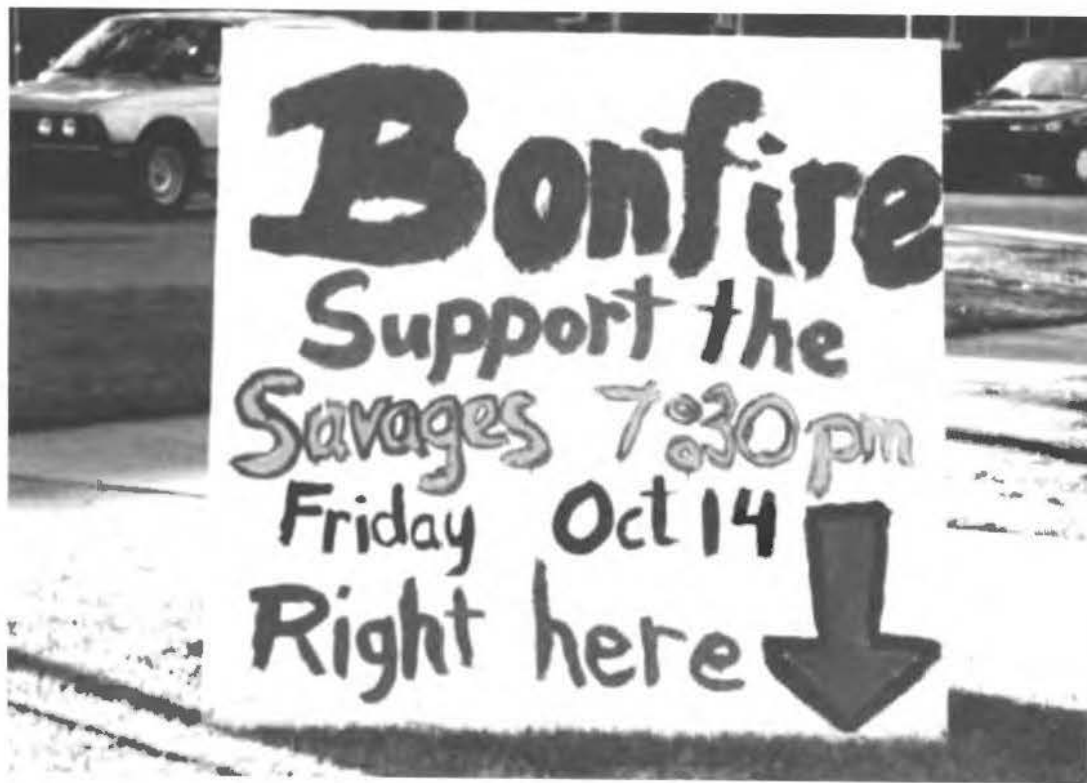 Bonfire
Support the
Savages 7:30 pm
Friday Oct 14
Right here